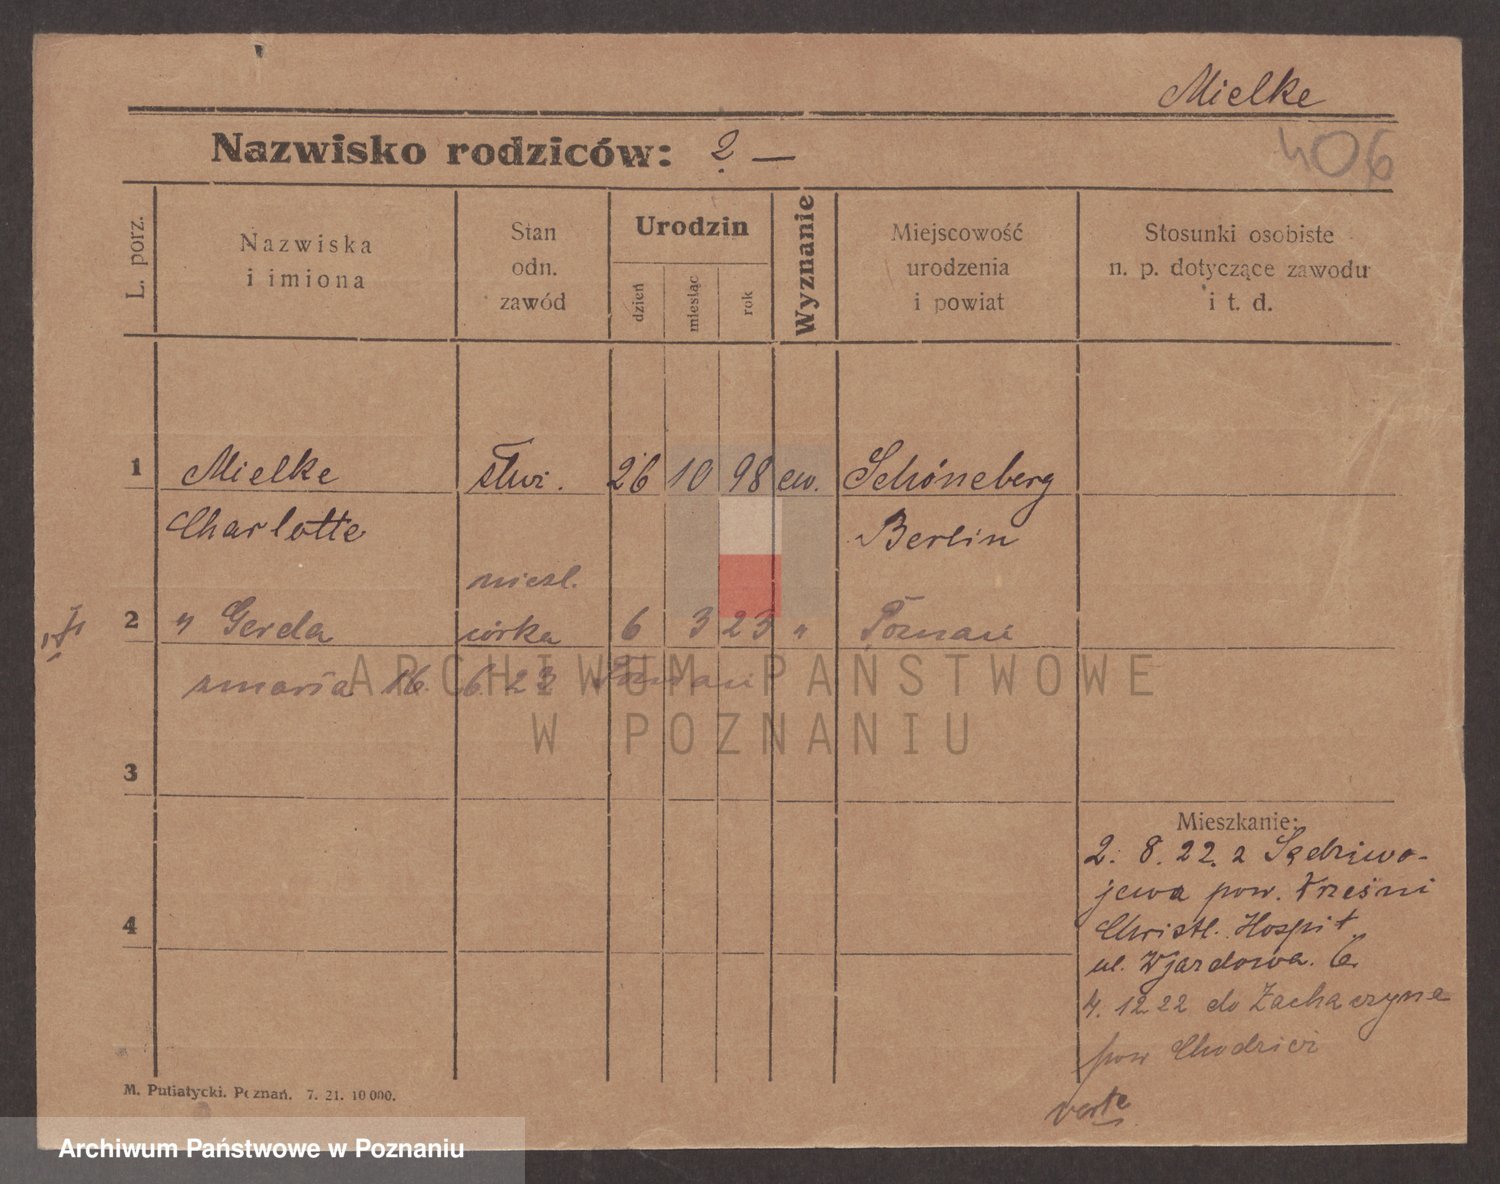 Mielke
Nazwisko rodziców: ? —
406
L. porz.
Nazwiska
i imiona
Stan
odn.
zawód
Urodzin
dzień
miesiąc
rok
Wyznanie
Miejscowość
urodzenia
i powiat
Stosunki osobiste
n. p. dotyczące zawodu
i t. d.
1 Mielke 26 10 98 ew. Schöneberg
Charlotte Berlin
nieśl.
2 " Gerda córka 6 3 23 " Poznań
zmarła 16. 6. 23 Poznań
ARCHIWUM PAŃSTWOWE
W POZNANIU
3
Mieszkanie:
2. 8. 22. z Sędziwo-
jewa pow. Wrześni
4
Christl. Hospit.
ul. Wjazdowa. 6.
4. 12 22 do Zacharzyna
pow Chodzież
verte
M. Putiatycki. Poznań. 7. 21. 10 000.
Archiwum Państwowe w Poznaniu